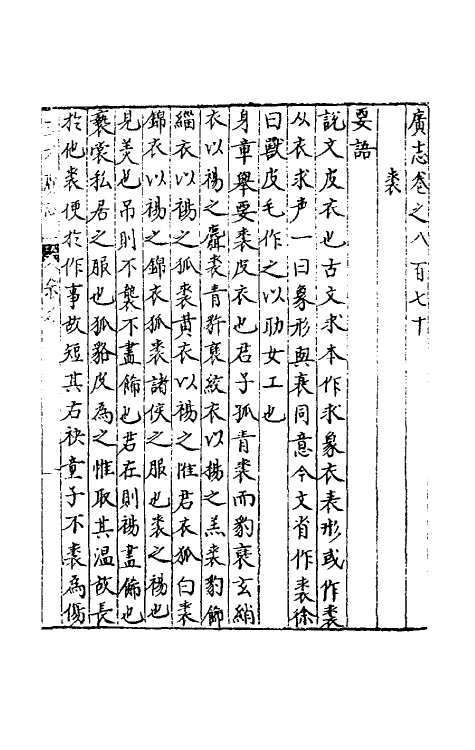 廣志卷之八百七十
裘
要語
說文皮衣也古文求本作求象衣表形或作裘
从衣求声一曰象形與衰同意今文省作裘徐
曰獸皮毛作之以助女工也
身章舉要裘皮衣也君子狐青裘而豹褎玄綃
衣以裼之麛裘青豻褎絞衣以裼之羔裘豹飾
緇衣以裼之狐裘黃衣以裼之惟君衣狐白裘
錦衣以裼之錦衣狐裘諸侯之服也裘之裼也
見美也吊則不襲不盡飾也君在則裼盡飾也
褻裘私居之服也狐貉皮為之惟取其温故長
於他裘便於作事故短其右袂童子不裘為傷